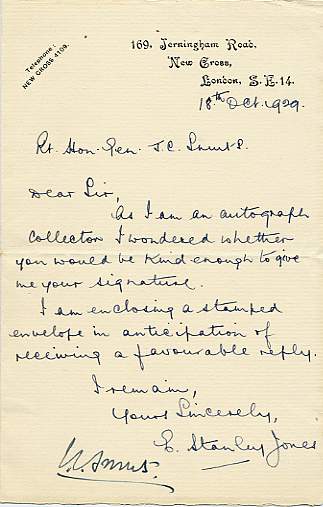 Telephone:
NEW CROSS 4109.
169, Jerningham Road,
New Cross,
London, S.E.14.
18th Oct. 1929.
Rt. Hon. Gen. J.C. Smuts.
Dear Sir,
As I am an autograph
collector I wondered whether
you would be kind enough to give
me your signature.
I am enclosing a stamped
envelope in anticipation of
receiving a favourable reply.
I remain,
Yours Sincerely,
E. Stanley Jones
J.C. Smuts.